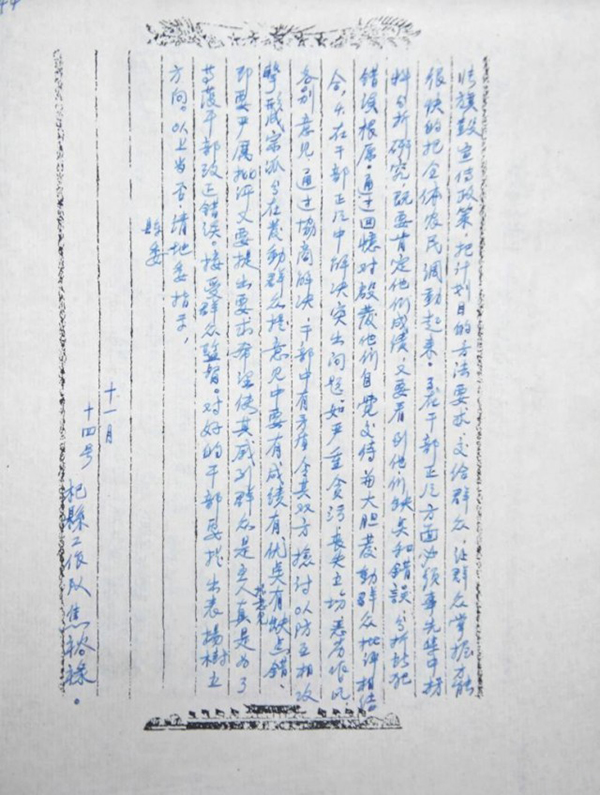 44
帐旗鼓宣传政策把计划目的方法要求交给群众，让群众掌握才能
很快的把全体农民调动起来。至於干部正风方面必须事先集中材
料分析研究，既要肯定他们成绩又要看到他们缺点和错误分析其犯
错误根原。通过回忆对比启发他们自觉交待并大胆发动群众批评相结
合，在干部正风中解决突出问题如严重贪污丧失立场恶劣作风
各别意见通过协商解决，干部中有矛盾令其双方检讨以防互相攻
击形成宗派，在发动群众提意见中要有成绩有优点有缺点错
即要严属批评又要提出要求希望使其感到群众是主人真是为了
导护干部改正错误。接受群众监督。对好的干部要提出表扬树立
方向。以上当否请地委指示，
县委
十一月
十四号 杞縣工作队焦裕禄。